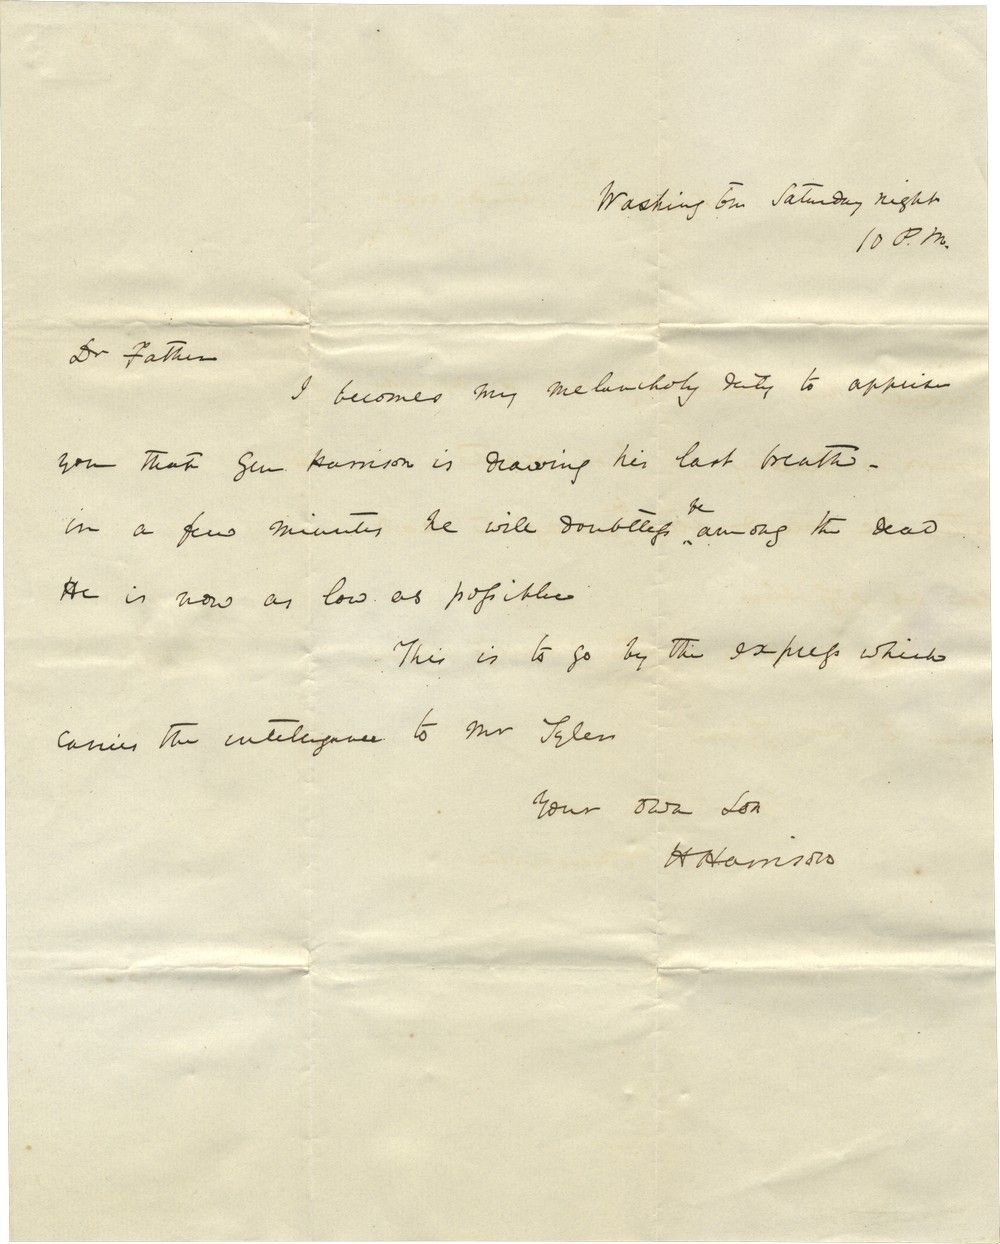 Washington Saturday night
10 P.M.
Dr Father
I becomes my melancholy duty to apprise
you that Gen Harrison is drawing his last breath -
in a few minutes he will doubtless be among the dead
He is now as low as possible
This is to go by the express which
carries the intelligence to Mr Tyler
Your own Son
H Harrison